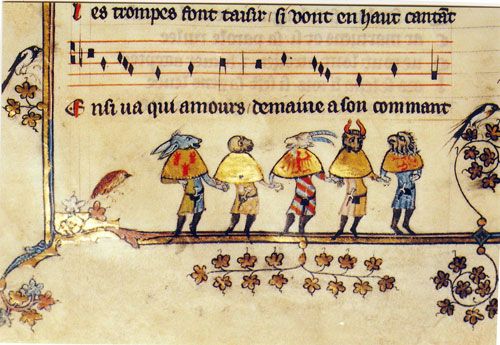 les trompes font taisir / si vont en haut cantāt
Ensi ua qui amours / demaine a son commant